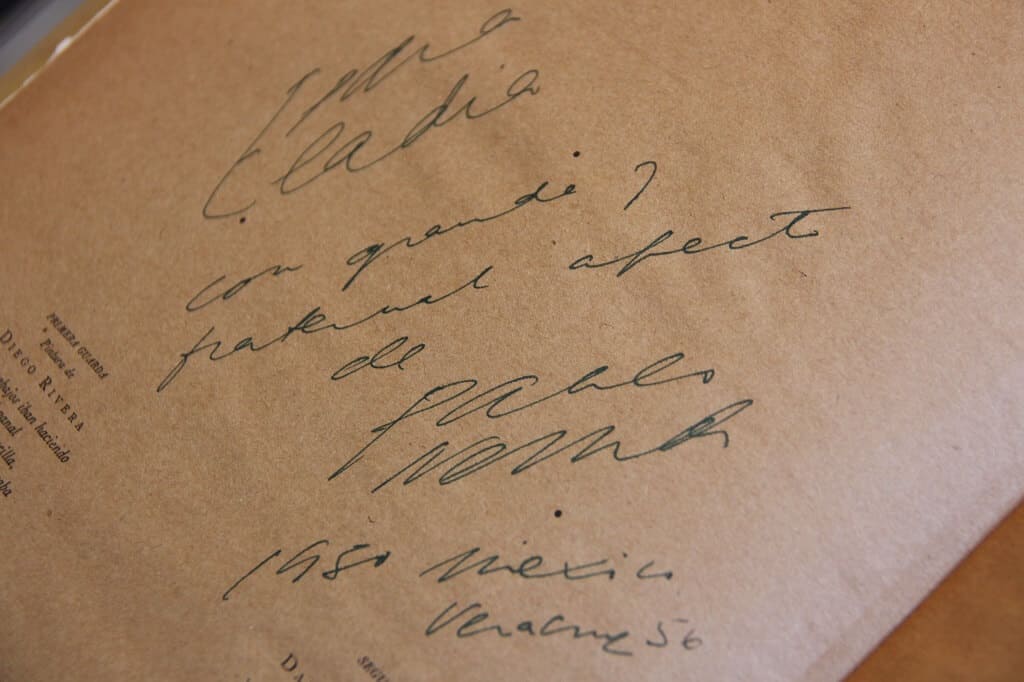 Para
con grande y
fraternal afecto
de
Pablo
Neruda
1950 Mexico
Veracruz 56
PRIMERA GUARDA
Pintura de
DIEGO RIVERA
iban haciendo
SEGU
DA